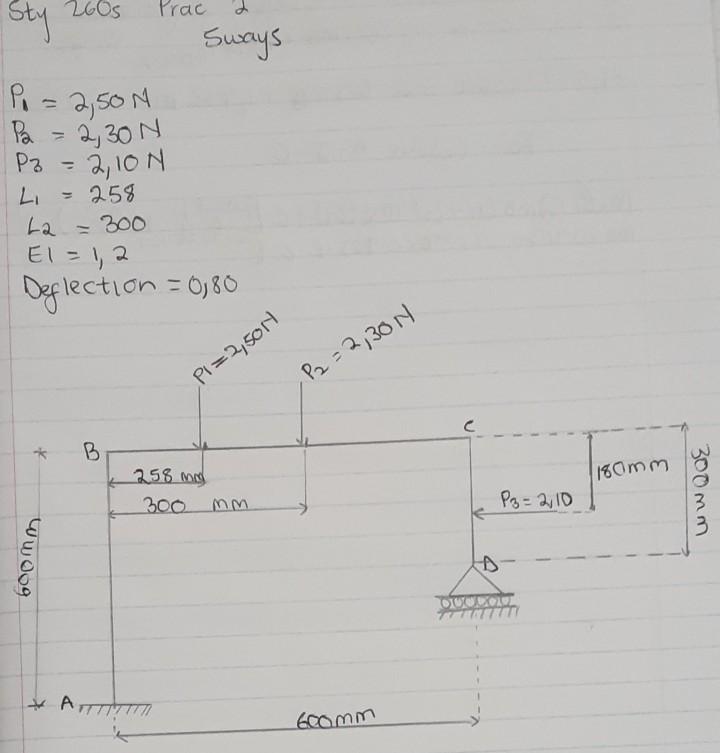 Sty 260s Prac 2
Sways
P1 = 2,50 N
P2 = 2,30 N
P3 = 2,10 N
L1 = 258
L2 = 300
EI = 1,2
Deflection = 0,80
P1 = 2,50N
P2 = 2,30 N
B
C
258 mm
300 mm
180mm
300mm
P3 = 2,10
600mm
D
A
600mm